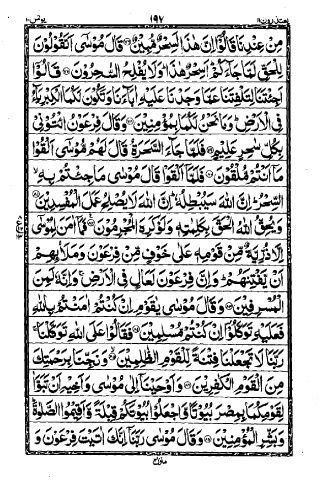 یعتذرون ۱۱ ۱۹۷ یونس ۱۰
مِنْ عِنْدِنَا قَالُوْٓا اِنَّ هٰذَا لَسِحْرٌ مُّبِيْنٌ ۝ قَالَ مُوْسٰٓى اَتَقُوْلُوْنَ
لِلْحَقِّ لَمَّا جَآءَكُمْ اَسِحْرٌ هٰذَا وَلَا يُفْلِحُ السّٰحِرُوْنَ ۝ قَالُوْٓا
اَجِئْتَنَا لِتَلْفِتَنَا عَمَّا وَجَدْنَا عَلَيْهِ اٰبَآءَنَا وَتَكُوْنَ لَكُمَا الْكِبْرِيَآءُ
فِى الْاَرْضِ وَمَا نَحْنُ لَكُمَا بِمُؤْمِنِيْنَ ۝ وَقَالَ فِرْعَوْنُ ائْتُوْنِيْ
بِكُلِّ سٰحِرٍ عَلِيْمٍ ۝ فَلَمَّا جَآءَ السَّحَرَةُ قَالَ لَهُمْ مُّوْسٰٓى اَلْقُوْا
مَآ اَنْتُمْ مُّلْقُوْنَ ۝ فَلَمَّآ اَلْقَوْا قَالَ مُوْسٰى مَا جِئْتُمْ بِهِ
السِّحْرُ اِنَّ اللّٰهَ سَيُبْطِلُهٗ اِنَّ اللّٰهَ لَا يُصْلِحُ عَمَلَ الْمُفْسِدِيْنَ ۝
وَيُحِقُّ اللّٰهُ الْحَقَّ بِكَلِمٰتِهٖ وَلَوْ كَرِهَ الْمُجْرِمُوْنَ ۝ فَمَآ اٰمَنَ لِمُوْسٰٓى
اِلَّا ذُرِّيَّةٌ مِّنْ قَوْمِهٖ عَلٰى خَوْفٍ مِّنْ فِرْعَوْنَ وَمَلَا۟ئِهِمْ
اَنْ يَّفْتِنَهُمْ وَاِنَّ فِرْعَوْنَ لَعَالٍ فِى الْاَرْضِ وَاِنَّهٗ لَمِنَ
الْمُسْرِفِيْنَ ۝ وَقَالَ مُوْسٰى يٰقَوْمِ اِنْ كُنْتُمْ اٰمَنْتُمْ بِاللّٰهِ
فَعَلَيْهِ تَوَكَّلُوْٓا اِنْ كُنْتُمْ مُّسْلِمِيْنَ ۝ فَقَالُوْا عَلَى اللّٰهِ تَوَكَّلْنَا
رَبَّنَا لَا تَجْعَلْنَا فِتْنَةً لِّلْقَوْمِ الظّٰلِمِيْنَ ۝ وَنَجِّنَا بِرَحْمَتِكَ
مِنَ الْقَوْمِ الْكٰفِرِيْنَ ۝ وَاَوْحَيْنَآ اِلٰى مُوْسٰى وَاَخِيْهِ اَنْ تَبَوَّاٰ
لِقَوْمِكُمَا بِمِصْرَ بُيُوْتًا وَّاجْعَلُوْا بُيُوْتَكُمْ قِبْلَةً وَّاَقِيْمُوا الصَّلٰوةَ
وَبَشِّرِ الْمُؤْمِنِيْنَ ۝ وَقَالَ مُوْسٰى رَبَّنَآ اِنَّكَ اٰتَيْتَ فِرْعَوْنَ وَ
منزل ۳